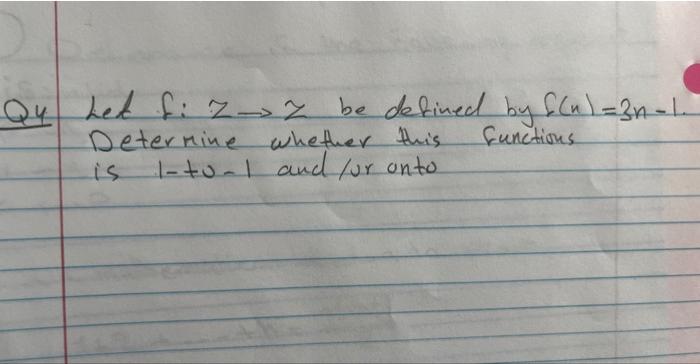 Q4 Let f: Z → Z be defined by f(n) = 3n - 1.
Determine whether this functions
is 1-to-1 and/or onto